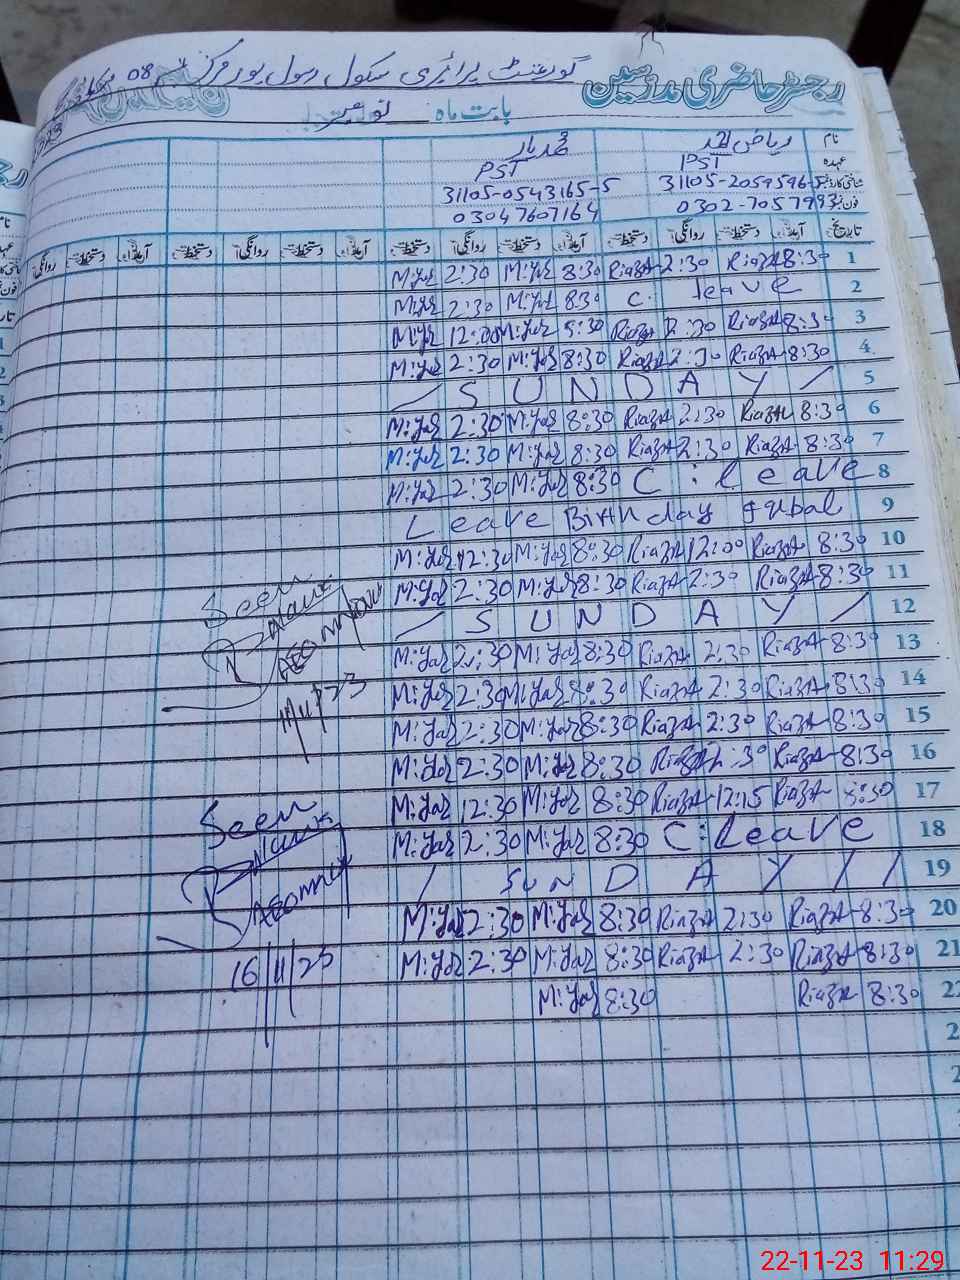 گورنمنٹ پرائمری سکول رسول پور مرکز 08
رجسٹر حاضری مدرسین
بابت ماہ نومبر
نام ریاض احمد محمد یار
عہدہ PST PST
شناختی کارڈ نمبر 31105-2059596-5 31105-0543165-5
فون نمبر 0302-7057993 03047607164
تاریخ آمد دستخط روانگی دستخط آمد دستخط روانگی دستخط آمد دستخط روانگی دستخط
M:Yar 2:30 M:Yar 8:30 RiazA 2:30 RiazA 8:30 1
M:Yar 2:30 M:Yar 8:30 C. leave 2
M:Yar 12:00 M:Yar 8:30 RiazA 12:30 RiazA 8:30 3
M:Yar 2:30 M:Yar 8:30 RiazA 2:30 RiazA 8:30 4
/ S U N D A Y / 5
M:Yar 2:30 M:Yar 8:30 RiazA 2:30 RiazA 8:30 6
M:Yar 2:30 M:Yar 8:30 RiazA 2:30 RiazA 8:30 7
M:Yar 2:30 M:Yar 8:30 C : leave 8
Leave Birth day Iqubal 9
M:Yar 12:30 M:Yar 8:30 RiazA 12:00 RiazA 8:30 10
M:Yar 2:30 M:Yar 8:30 RiazA 2:30 RiazA 8:30 11
Seen
/ S U N D A Y / 12
M:Yar 2:30 M:Yar 8:30 RiazA 2:30 RiazA 8:30 13
AEO
M:Yar 2:30 M:Yar 8:30 RiazA 2:30 RiazA 8:30 14
M:Yar 2:30 M:Yar 8:30 RiazA 2:30 RiazA 8:30 15
M:Yar 2:30 M:Yar 8:30 RiazA 2:30 RiazA 8:30 16
M:Yar 12:30 M:Yar 8:30 RiazA 12:15 RiazA 8:30 17
Seen
M:Yar 2:30 M:Yar 8:30 C:Leave 18
/ SUN D A Y / / 19
AEO
M:Yar 2:30 M:Yar 8:30 RiazA 2:30 RiazA 8:30 20
16/11/23
M:Yar 2:30 M:Yar 8:30 RiazA 2:30 RiazA 8:30 21
M:Yar 8:30 RiazA 8:30 22
22-11-23 11:29